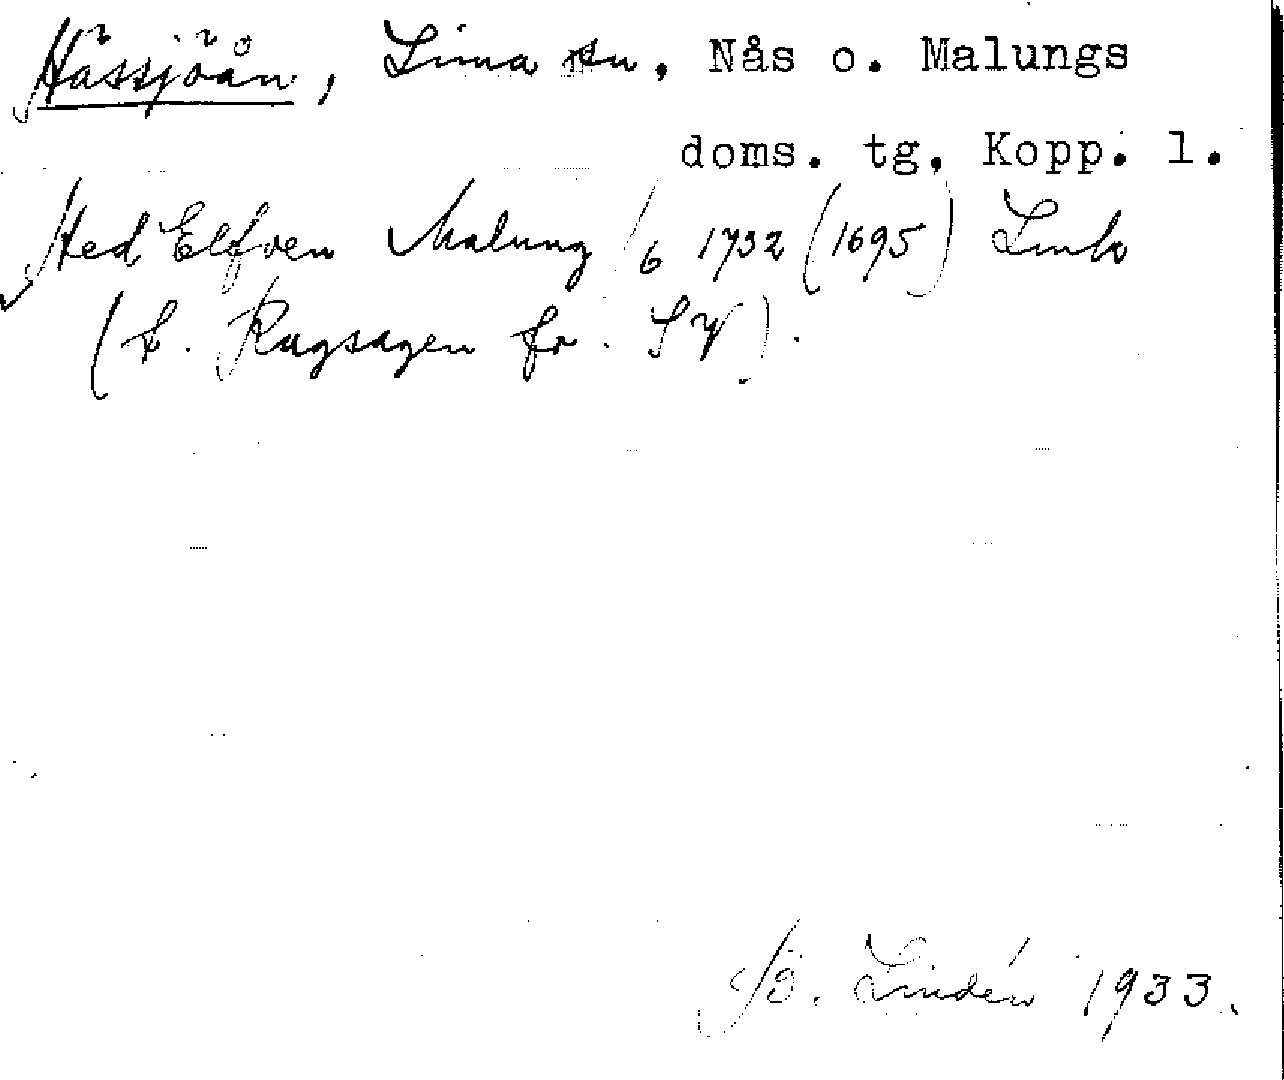 Hässjöån, Lima sn, Nås o. Malungs
doms. tg, Kopp. l.
Hed Elfven Malung 6 1732 (1695) Lmk
(t. Ragsagen fr. SV).
B. Lindén 1933.